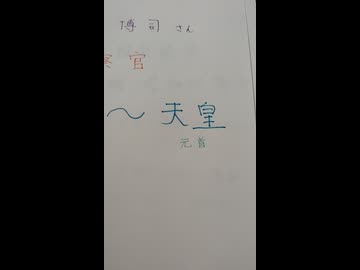 博司さん
察官
～天皇
元首